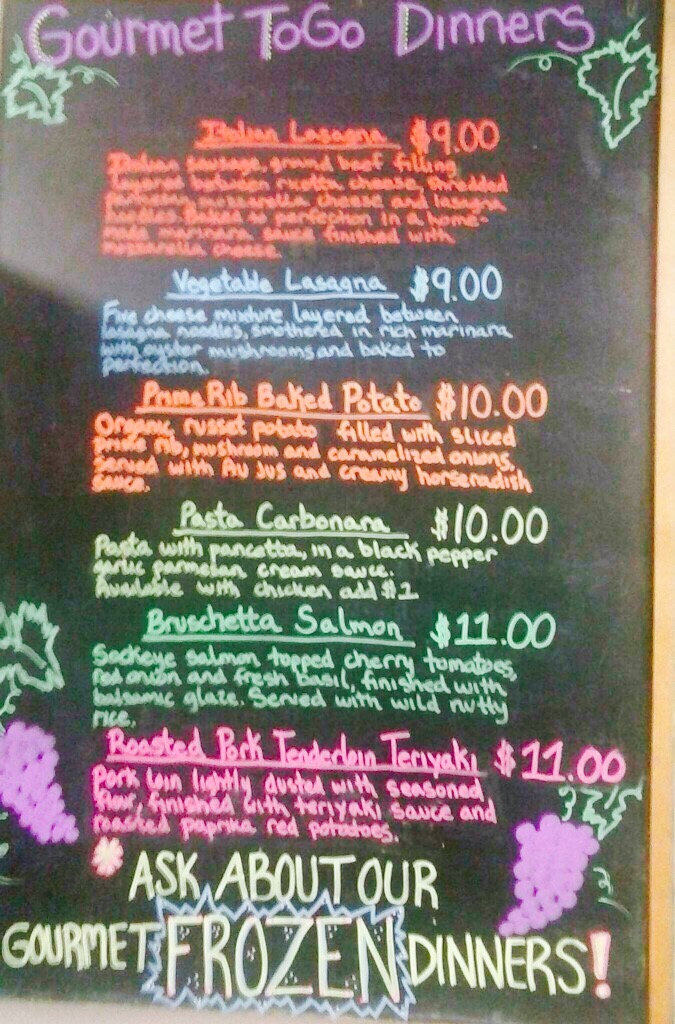 Gourmet ToGo Dinners
Italian Lasagna $9.00
Italian sausage, ground beef filling
layered between ricotta cheese, shredded
mozzarella cheese and lasagna
noodles. Baked to perfection in a home-
made marinara sauce finished with
mozzarella cheese.
Vegetable Lasagna $9.00
Five cheese mixture layered between
lasagna noodles, smothered in rich marinara
with oyster mushrooms and baked to
perfection.
Prime Rib Baked Potato $10.00
Organic russet potato filled with sliced
prime rib, mushroom and caramelized onions.
Served with Au Jus and creamy horseradish
sauce.
Pasta Carbonara $10.00
Pasta with pancetta, in a black pepper
garlic parmesan cream sauce.
Available with chicken add $2
Bruschetta Salmon $11.00
Sockeye salmon topped cherry tomatoes,
red onion and fresh basil, finished with
balsamic glaze. Served with wild nutty
rice.
Roasted Pork Tenderloin Teriyaki $11.00
Pork loin lightly dusted with seasoned
flour, finished with teriyaki sauce and
roasted paprika red potatoes.
* ASK ABOUT OUR
GOURMET FROZEN DINNERS!